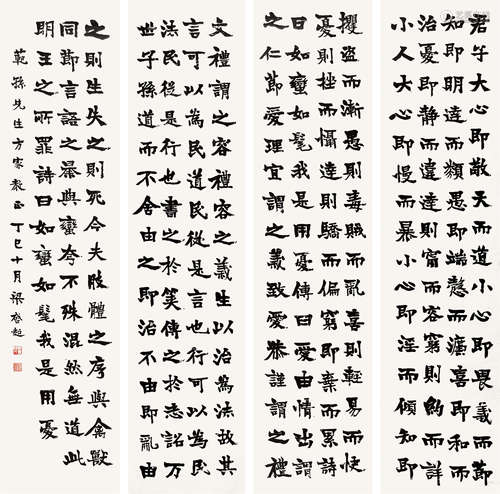 君子大心即敬天而道小心即畏義而節
知即明達而類愚即端愨而灋喜即和而
治憂即靜而違達即寧而容窮則約而詳
小人大心即慢而暴小心即淫而傾知即
攫盜而漸愚則毒賊而亂喜則輕易而快
憂則挫而懾達則驕而偏窮則棄而累詩
曰如蠻如髦我是用憂傳曰愛由情出謂
之仁節愛理宜謂之義致愛恭謹謂之禮
文禮謂之容禮容之義生以治為法故其
言可以為民道民從是言也行可以為民
法民從是行也書之於筴傳之於志詔萬
世子孫道而不舍由之即治不由即亂由
之則生失之則死今夫肢體之序與禽獸
同節言語之暴與蠻夸不殊混然無道此
明王之所罪詩曰如蠻如髦我是用憂
範孫先生方家教正 丁巳十月梁啟超